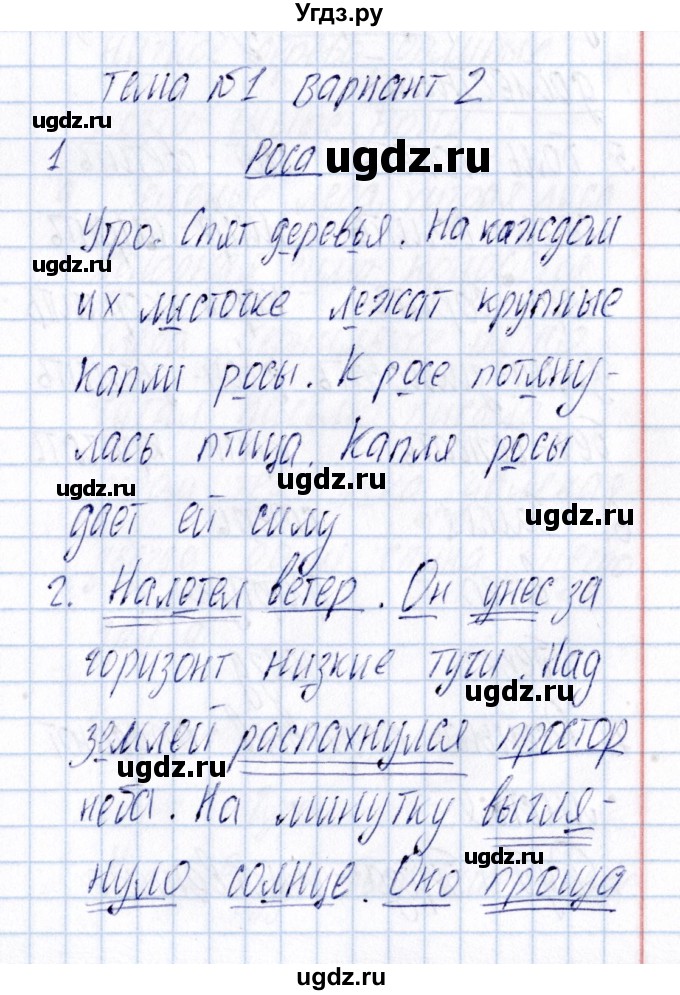 Угдз.ру
тема №1 вариант 2
ugdz.ru
1 Роса ugdz.ru
Утро. Спят деревья. На каждом
ugdz.ru
их листочке лежат крупные
капли росы. К росе потяну-
лась птица. Капля росы
ugdz.ru ugdz.ru ugdz.ru
дает ей силу
2. Налетел ветер. Он унес за
горизонт низкие тучи. Над
ugdz.ru
землей распахнулся простор
ugdz.ru
неба. На минутку выгля-
ugdz.ru
нуло солнце. Оно проща
ugdz.ru